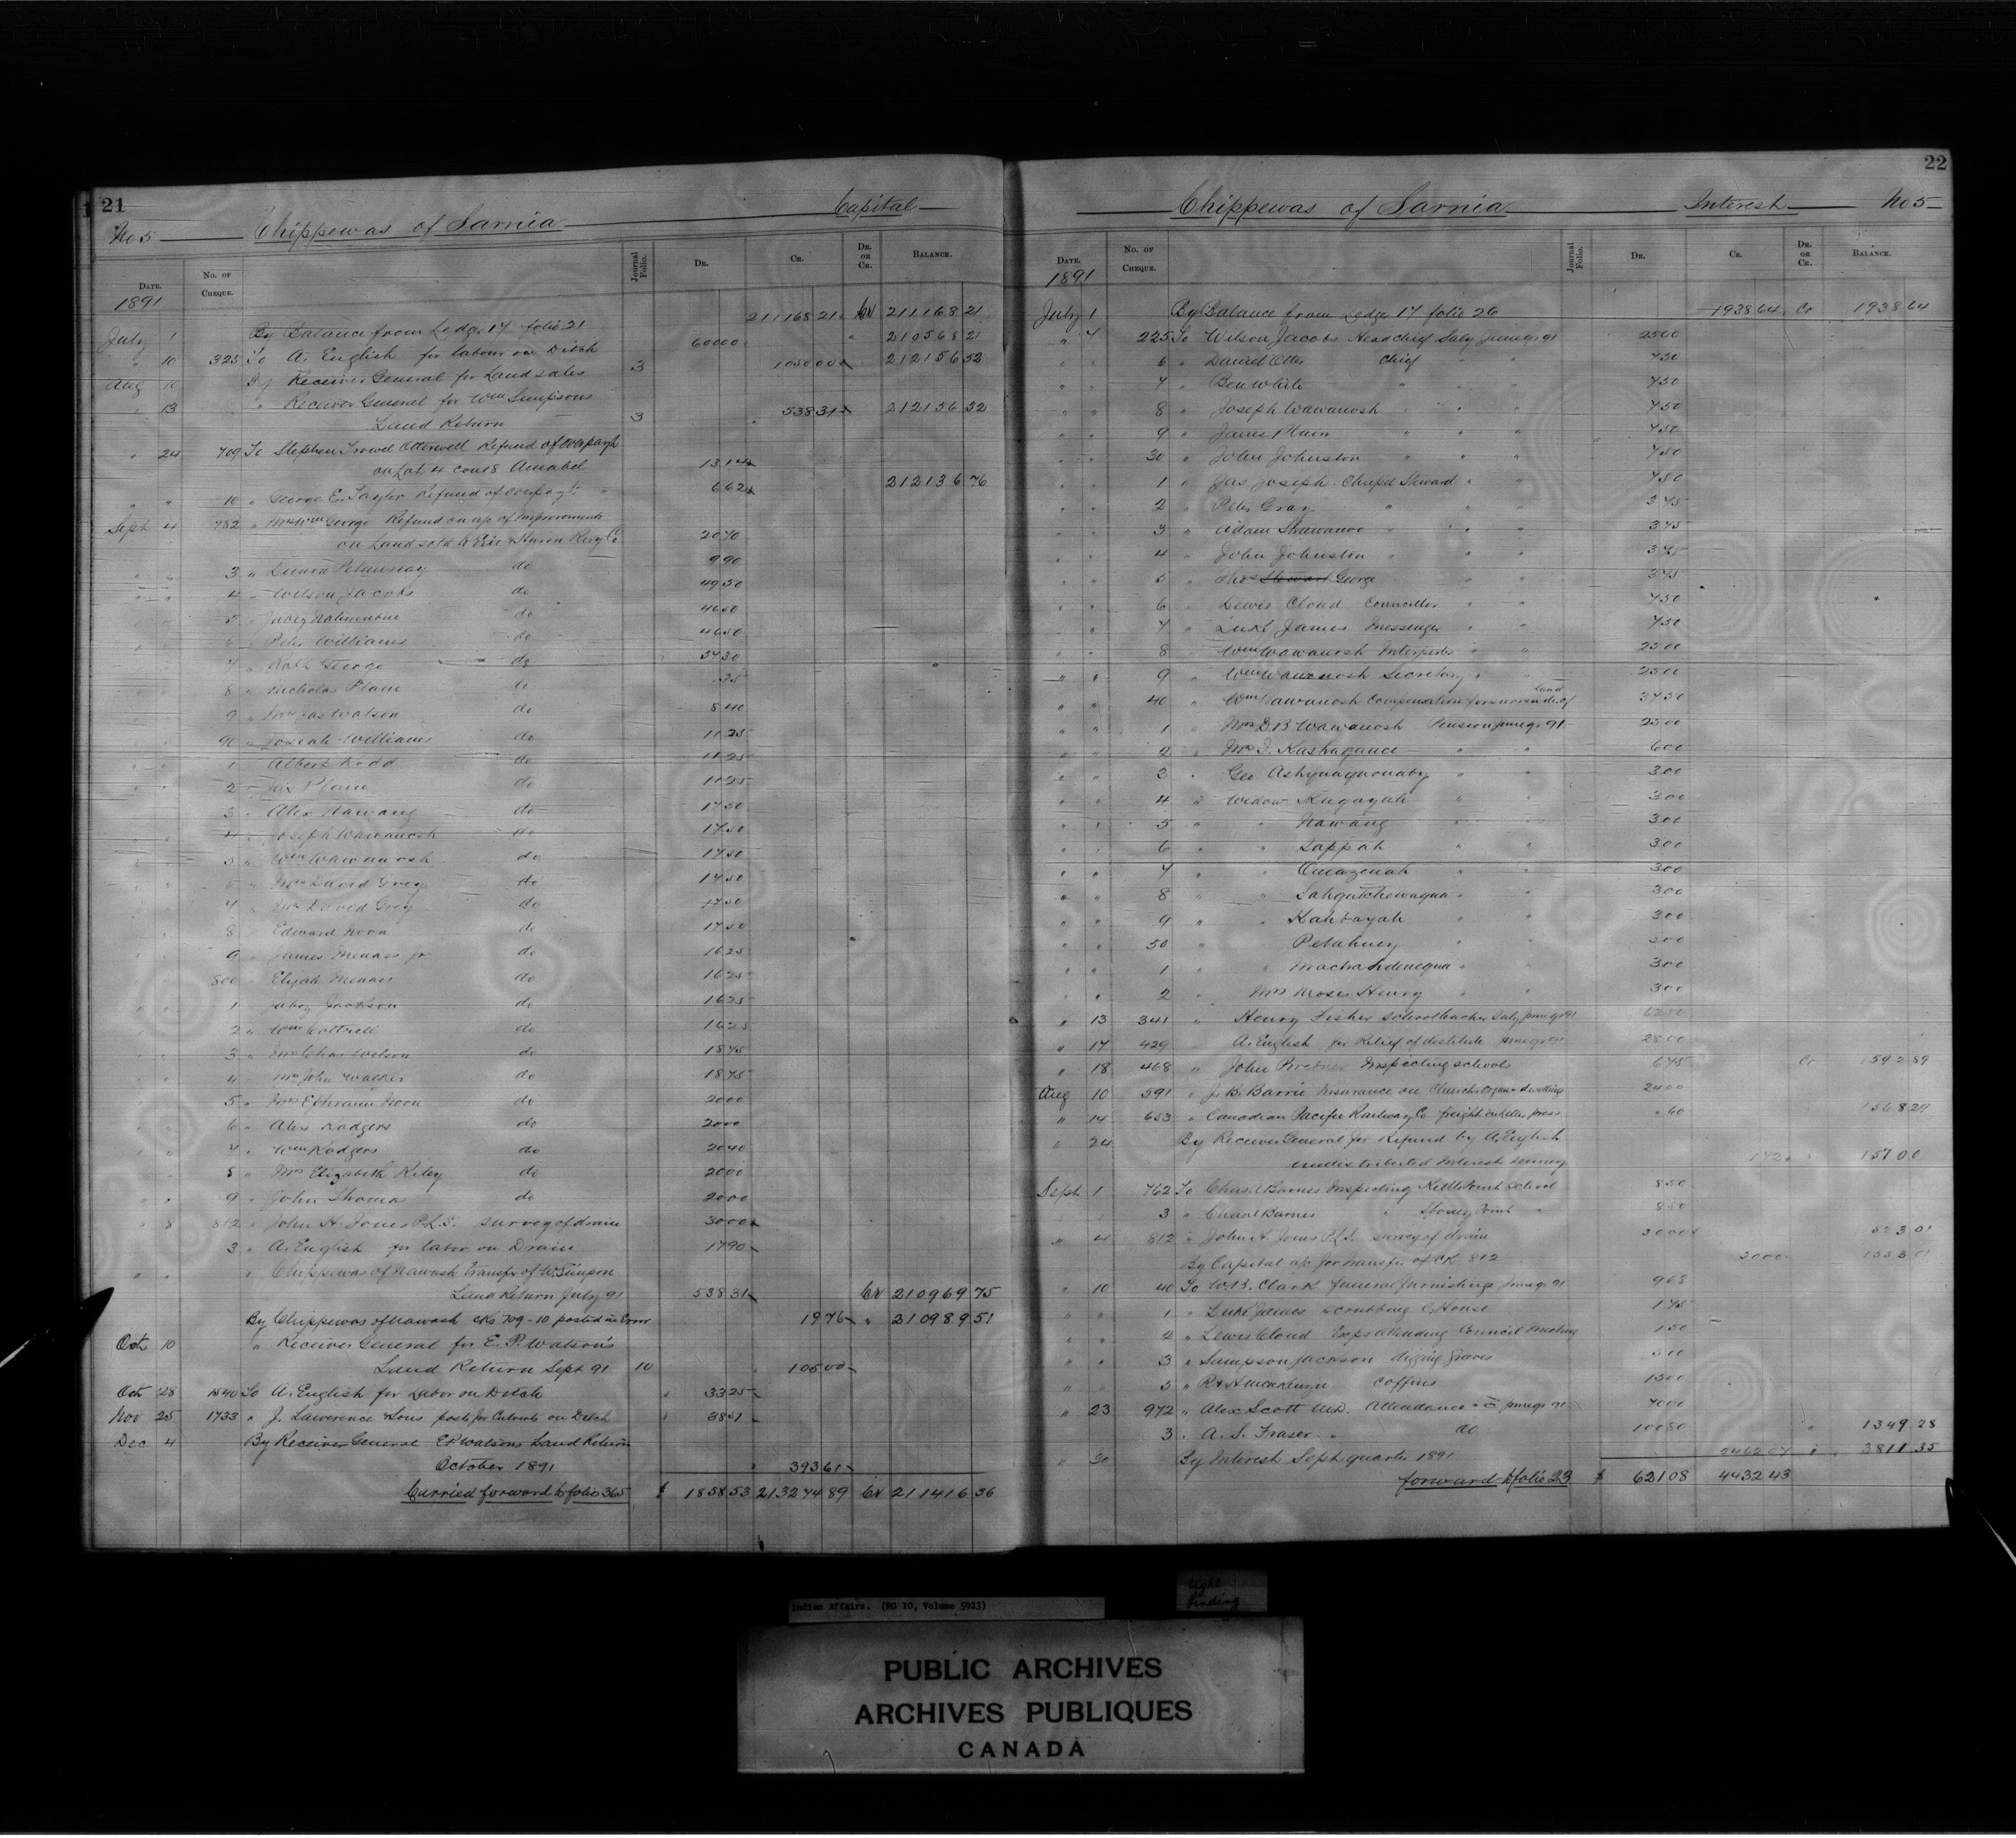 21
No 5 Chippewas of Sarnia Capital
DATE. No. OF CHEQUE. Journal Folio. DR. CR. DR. OR CR. BALANCE.
1891
July 1 By Balance from Ledger 17 folio 21 211168 21 Cr 211168 21
" 10 325 To A. English for labour on Ditch 600 00 " 210568 21
Aug 10 By Receiver General for Land sales 3 1050 00 212156 52
" 13 " Receiver General for Wm Simpsons
Land Return 3 538 31 212156 52
" 24 709 To Stephen Trowel Otterwell Refund of overpayt
on Lot 4 con 8 Amabel 13 14
" " 10 " George E. Taylor Refund of overpayt " 6 62 212136 76
Sept 4 782 " Mrs Wm George Refund on a/c of Improvements
on Land sold to Erie & Huron Rwy Co 20 70
" " 3 " do 9 90
" " 4 " Wilson Jacobs do 49 50
5 " do 46 50
6 " Peter Williams do 46 50
7 " George do 54 30
8 " Nicholas Plain do 35
9 " Mrs Jas Watson do 8 40
90 " Josiah Williams do 11 25
1 " Albert Rodd do 11 25
2 " Jas Plain do 11 25
3 " Alex Nawang do 17 50
4 " Joseph Wawanosh do 17 50
5 " Wm Wawanosh do 17 50
6 " Mrs David Grey do 17 50
7 " Mr David Grey do 17 50
8 " Edward Noon do 17 50
9 " James Menass Jr do 16 25
800 " Elijah Menass do 16 25
1 " Jabez Jackson do 16 25
2 " Wm Cottrell do 16 25
3 " Mrs Chas Watson do 18 75
4 " Mrs John Walker do 18 75
5 " Mrs Ephraim Noon do 20 00
6 " Alex Rodgers do 20 00
7 " Wm Rodgers do 20 40
8 " Mrs Elizabeth Riley do 20 00
9 " John Thomas do 20 00
" 8 812 " John H. Jones P.L.S. survey of drain 30 00
3 " A. English for labor on Drain 17 90
" " " Chippewas of Nawash transfer of W. Simpson
Land Return July 91 538 31 Cr 210969 75
By Chippewas of Nawash cks 709-10 posted in Error 19 76 " 210989 51
Oct 10 " Receiver General for E. P. Watson's
Land Return Sept 91 10 105 00
Oct 28 1540 To A. English for Labor on Ditch 33 25
Nov 25 1733 " J. Lawrence & Sons posts for Culverts on Ditch 38 51
Dec 4 By Receiver General E P Watsons Land Return
October 1891 393 61
Carried forward to folio 365 $ 1858 53 213274 89 Cr 211416 36
22
Chippewas of Sarnia Interest No 5
DATE. No. OF CHEQUE. Journal Folio. DR. CR. DR. OR CR. BALANCE.
1891
July 1 By Balance from Ledger 17 folio 26 1938 64 Cr 1938 64
" 4 225 To Wilson Jacobs Head Chief Saly June qr 91 25 00
" " 6 " Daniel Otter Chief " 7 50
" " 7 " Ben White " " " 7 50
" " 8 " Joseph Wawanosh " " " 7 50
" " 9 " James Plain " " " 7 50
" " 30 " John Johnston " " " 7 50
" " 1 " Jas Joseph Chapel Steward " " 7 50
" " 2 " Peter Gray " " " 3 75
" " 3 " Adam Shawanoo " " " 3 75
" " 4 " John Johnston " " " 3 75
" " 5 " Thos Stewart George " " 3 75
" " 6 " Lewis Cloud Councillor " " 7 50
" " 7 " Luke James Messenger " " 7 50
" " 8 " Wm Wawanosh Interpreter " " 25 00
" " 9 " Wm Wawanosh Secretary " " 25 00
" " 40 " Wm Wawanosh Compensation for surrender of Land 37 50
" " 1 " Mrs D. B. Wawanosh Pension June qr 91 25 00
" " 2 " Mrs J. Kashagance " " 6 00
" " 3 " Geo Ashquaquonaby " " 3 00
" " 4 " Widow Kugayah " " 3 00
" " 5 " " Nawang " " 3 00
" " 6 " " Sappah " " 3 00
" " 7 " " Omazenah " " 3 00
" " 8 " " Sahgutchewaqua " " 3 00
" " 9 " " Kahbayah " " 3 00
" " 50 " " Petahney " " 3 00
" " 1 " " " " 3 00
" " 2 " Mrs Moses Henry " " 3 00
" 13 341 " Henry Fisher school teacher Saly June qr 91 62 50
" 17 429 " A. English for Relief of destitute June qr 91 28 00
" 18 468 " John Inspecting schools 6 75 Cr 1592 89
Aug 10 591 " J. B. Barrie Insurance on Church Organ & dwelling 24 00
" 14 653 " Canadian Pacific Railway Co freight on letter press 60 1568 29
" 24 By Receiver General for Refund by A. English
undistributed Interest money 1 72 " 1570 01
Sept 1 762 To Chas. A. Barnes Inspecting Kettle Point School 8 50
" " 3 " Chas A Barnes " Stoney Point " 8 50
" 4 812 " John H. Jones P.L.S. survey of drain 30 00 1523 01
By Capital a/c for transfer of CK 812 30 00 1553 01
" 10 40 To W. B. Clark funeral furnishings June qr 91 9 68
" " 1 " Luke James scrubbing C. House 1 75
" " 2 " Lewis Cloud Exps attending Council Meeting 1 50
" " 3 " Sampson Jackson digging graves 3 00
" " 5 " R & A McKenzie coffins 15 00
" 23 972 " Alex Scott M.D. Attendance &c June qr 91 70 00
3 " A. S. Fraser " do 100 80 " 1349 28
" 30 By Interest Sept quarter 1891 2462 07 " 3811 35
forward to folio 23 $ 621 08 4432 43
Indian Affairs. (RG 10, Volume 5923)
tight binding
PUBLIC ARCHIVES
ARCHIVES PUBLIQUES
CANADA